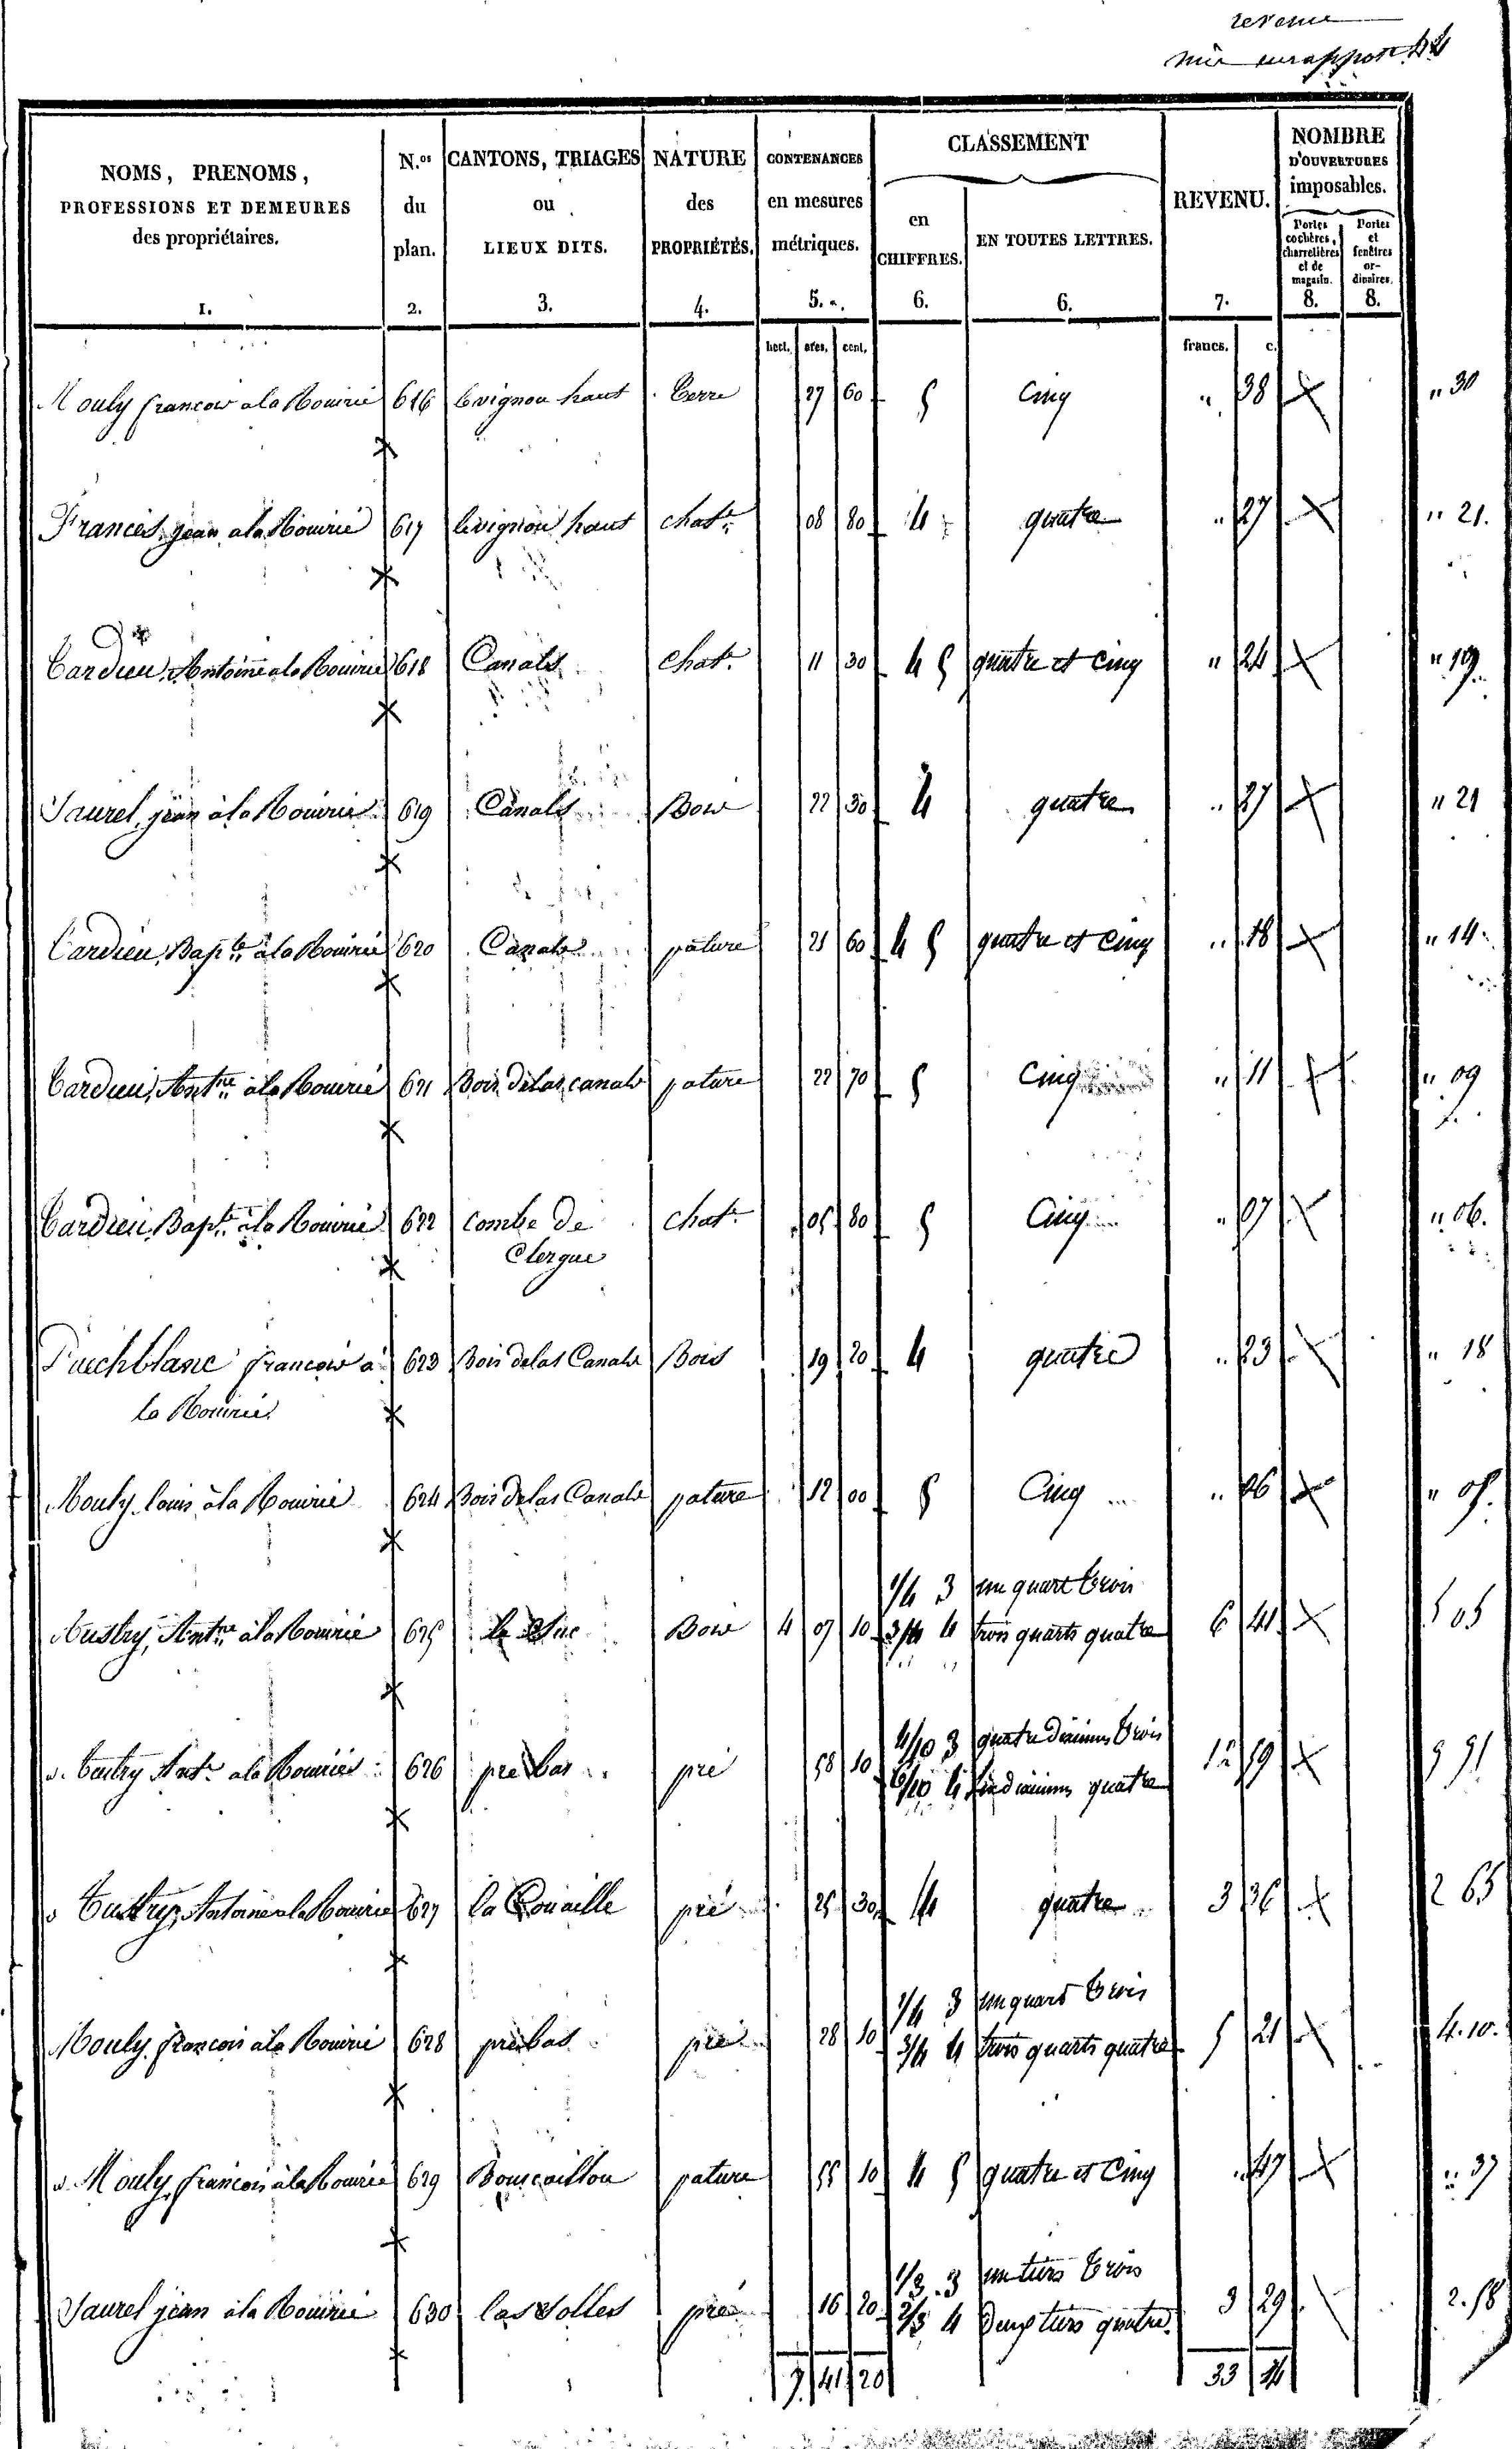 revenu
NOMS, PRENOMS,
PROFESSIONS ET DEMEURES
des propriétaires.
1.
N.os
du
plan.
2.
CANTONS, TRIAGES
ou
LIEUX DITS.
3.
NATURE
des
PROPRIÉTÉS.
4.
CONTENANCES
en mesures
métriques.
5.
CLASSEMENT
en
CHIFFRES.
6.
EN TOUTES LETTRES.
6.
REVENU.
7.
NOMBRE
D'OUVERTURES
imposables.
Portes
cochères,
charretières
et de
magasin.
8.
Portes
et
fenêtres
or-
dinaires.
8.
hect. ares. cent. francs. c.
Mouly francois à la Rouirié 616 levignou haut Terre 27 60 5 Cinq " 38 " 30
Francès jean à la Rouirié 617 levignou haut chat. 08 80 4 quatre " 27 " 21.
Cardieu Antoine à la Rouirié 618 Canals chat. 11 30 4 5 quatre et Cinq " 24 " 19
Saurel jean à la Rouirié 619 Canals Bois 22 30 4 quatre " 27 " 21
Cardieu Bapte à la Rouirié 620 Canals pature 21 60 4 5 quatre et Cinq " 18 " 14
Cardieu Antne à la Rouirié 621 Bois de las canals pature 22 70 5 Cinq " 11 " 09
Cardieu Bapte à la Rouirié 622 combe de chat. 05 80 5 Cinq " 07 " 06.
Clergue
Puechblanc francois à 623 Bois de las Canals Bois 19 20 4 quatre " 23 " 18
la Rouirié
Mouly louis à la Rouirié 624 Bois de las Canals pature 12 00 5 Cinq " 06 " 05.
1/4 3 un quart trois
Austry, Antne à la Rouirié 625 le Suc Bois 4 07 10 3/4 4 trois quarts quatre 6 41 5 05
4/10 3 quatre dixiemes trois
Austry Antne à la Rouirié 626 pre bas pré 58 10 6/10 4 six dixiemes quatre 12 59 9 91
Austry, Antoine à la Rouirié 627 la Gouaille pré 25 30 4 quatre 3 36 2 65
1/4 3 un quart trois
Mouly francois à la Rouirié 628 pré bas pré 28 10 3/4 4 trois quarts quatre 5 21 4.10.
Mouly, francois à la Rouirié 629 Bouscaillou pature 55 10 4 5 quatre et Cinq " 47 " 37
1/3 3 un tiers trois
Saurel jean à la Rouirié 630 las Solles pré 16 20 2/3 4 deux tiers quatre. 3 29 2.58
7 41 20 33 14